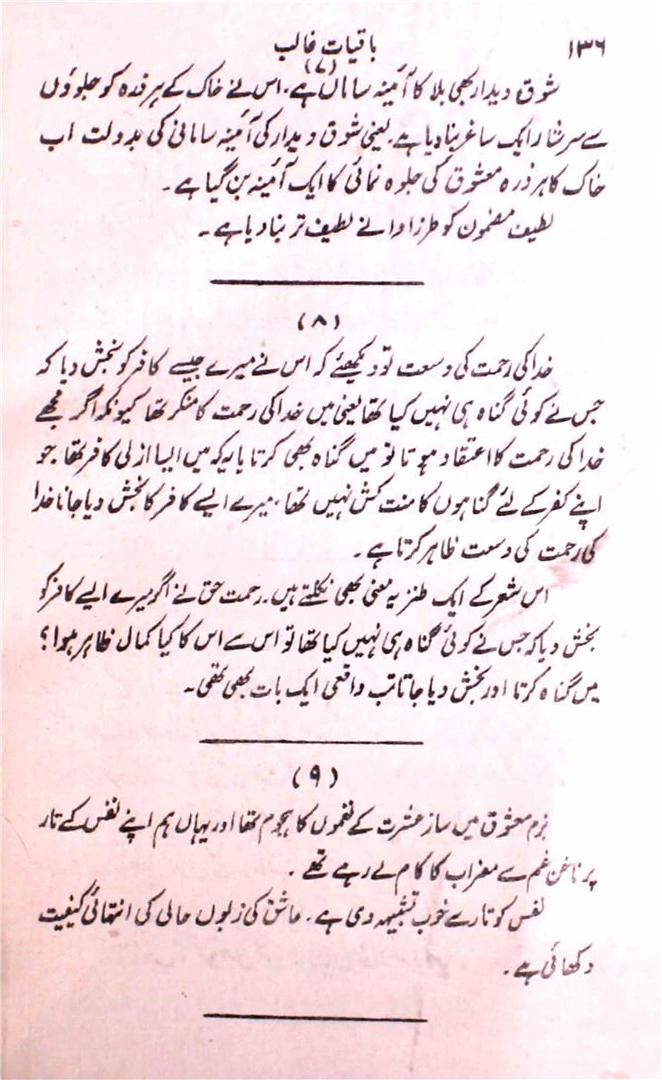 ۱۳۶
باقیات غالب
(۷)
شوق دیدار بھی بلا کا آئینہ ساماں ہے، اس نے خاک کے ہر ذرہ کو جلوؤں
سے سرشار ایک ساغر بنا دیا ہے۔ یعنی شوق دیدار کی آئینہ سامانی کی بدولت اب
خاک کا ہر ذرہ معشوق کی جلوہ نمائی کا ایک آئینہ بن گیا ہے۔
لطیف مضمون کو طرز ادا نے لطیف تر بنا دیا ہے۔
(۸)
خدا کی رحمت کی وسعت تو دیکھئے کہ اس نے میرے جیسے کافر کو بخش دیا کہ
جس نے کوئی گناہ ہی نہیں کیا تھا یعنی میں خدا کی رحمت کا منکر تھا کیونکہ اگر مجھے
خدا کی رحمت کا اعتقاد ہوتا تو میں گناہ بھی کرتا یا یہ کہ میں ایسا ازلی کافر تھا جو
اپنے کفر کے لئے گناہوں کا منت کش نہیں تھا، میرے ایسے کافر کا بخش دیا جانا خدا
کی رحمت کی وسعت ظاہر کرتا ہے۔
اس شعر کے ایک طنزیہ معنی بھی نکلتے ہیں۔ رحمت حق نے اگر میرے ایسے کافر کو
بخش دیا کہ جس نے کوئی گناہ ہی نہیں کیا تھا تو اس سے اس کا کیا کمال ظاہر ہوا؟
میں گناہ کرتا اور بخش دیا جاتا تب واقعی ایک بات بھی تھی۔
(۹)
بزم معشوق میں ساز عشرت کے نغموں کا ہجوم تھا اور یہاں ہم اپنے نفس کے تار
پر ناخن غم سے مضراب کا کام لے رہے تھے۔
نفس کو تار سے خوب تشبیہہ دی ہے۔ عاشق کی زبوں حالی کی انتہائی کیفیت
دکھائی ہے۔